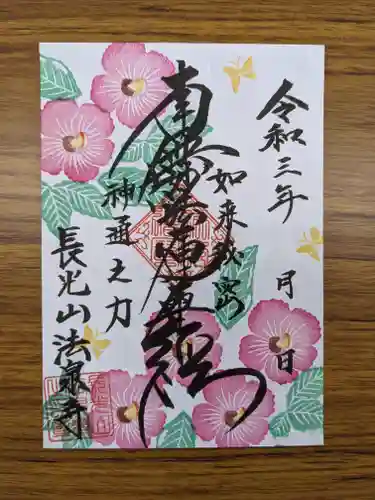 令和三年
月 日
如来秘密
南無妙法蓮華経
神通之力
長光山法泉寺